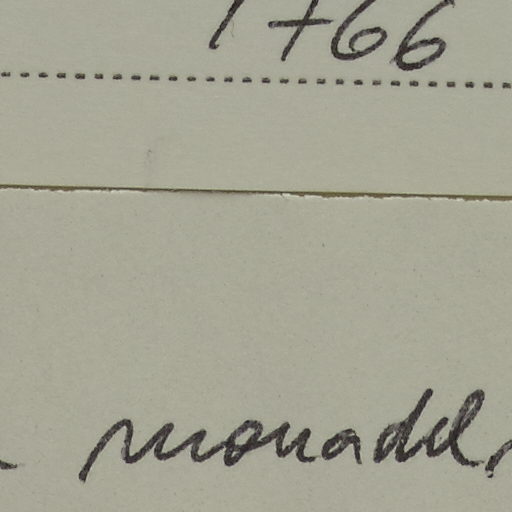 1766
monadel